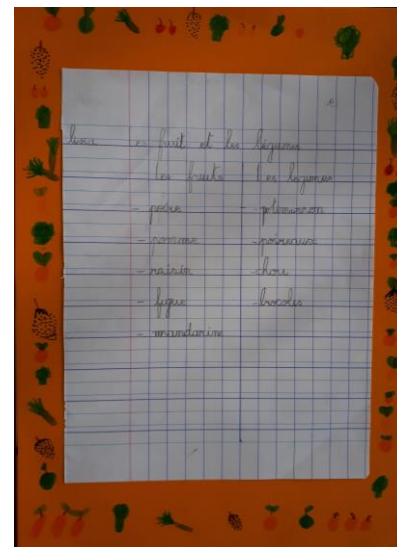 es fruit et les légumes
les fruits les légumes
- poire - potimarron
- pomme - poireaux
- raisin - chou
- figue - brocolis
- mandarine